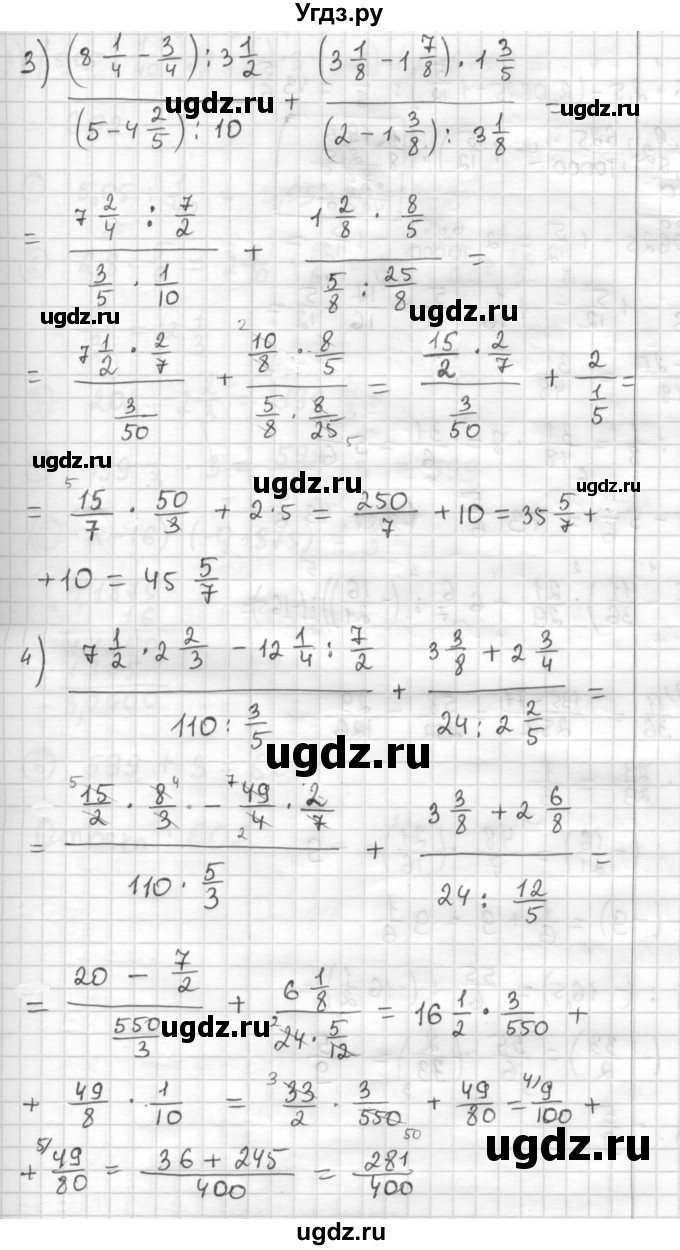 Угдз.ру
3) ((8 1/4 - 3/4) : 3 1/2) / ((5 - 4 2/5) : 10) + ((3 1/8 - 1 7/8) · 1 3/5) / ((2 - 1 3/8) : 3 1/8) =
ugdz.ru ugdz.ru ugdz.ru
= (7 2/4 : 7/2) / (3/5 · 1/10) + (1 2/8 · 8/5) / (5/8 : 25/8) =
ugdz.ru ugdz.ru
= (7 1/2 · 2/7) / (3/50) + (10/8 · 8/5) / (5/8 · 8/25) = (15/2 · 2/7) / (3/50) + 2 / (1/5) =
ugdz.ru ugdz.ru ugdz.ru
= 15/7 · 50/3 + 2·5 = 250/7 + 10 = 35 5/7 +
+ 10 = 45 5/7
4) (7 1/2 · 2 2/3 - 12 1/4 : 7/2) / (110 : 3/5) + (3 3/8 + 2 3/4) / (24 : 2 2/5) =
ugdz.ru ugdz.ru
= (15/2 · 8/3 · - 49/4 · 2/7) / (110 · 5/3) + (3 3/8 + 2 6/8) / (24 : 12/5) =
= (20 - 7/2) / (550/3) + (6 1/8) / (24 · 5/12) = 16 1/2 · 3/550 +
ugdz.ru ugdz.ru
+ 49/8 · 1/10 = 33/2 · 3/550 + 49/80 = 9/100 +
+ 49/80 = (36 + 245)/400 = 281/400
ugdz.ru
ugdz.ru